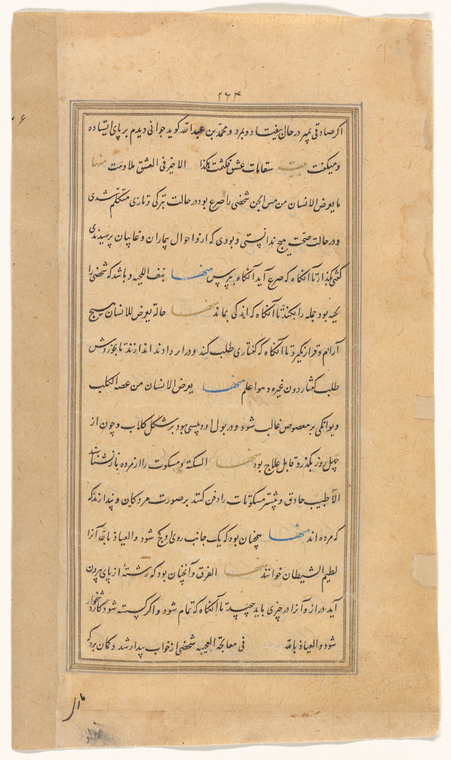 ۲۶۴
اگر صادقی بمیر در حال بیفتاد و بمرد و محمد بن عبدالله گوید جوانی دیدم بر پای ایستاده
و میگفت بیت الا خیر فی العشق بلا موت منها
ما یعرض الانسان من مس الجن شخصی را صرع بود در حالت بترکی و تازی متکلم شدی
و در حالت صحت هیچ ندانستی و بودی که از و احوال بیماران و غایبان پرسیدندی
گفتی بگذار تا آنگاه که صرع آید آنگاه بپرس منها نتف اللحیه و باشد که شخصی را
لحیه بود جمله را بکند تا آنگاه که اندکی بماند منها حاله یعرض للانسان هیچ
آرام و قرار نگیرد تا آنگاه که گفتاری طلب کند و در ابر دادند اندازند تا بخورش
طلب گفتار دون غیره و هو اعلم منها یعرض الانسان من عضه الکلب
و دیوانگی بر معضوض غالب شود و در بول او چیزی بود بر شکل کلاب و چون از
چهل روز بگذرد قابل علاج بود منها السکته بو مسکوت را از مرده باز نشناسند
الا طبیب حاذق و بیشتر مسکوتات را دفن کنند بر صورت مردگان و پندارند که
که مرده اند منها چنان بود که یک جانب روی او کج شود و العیاذ بالله آنرا
لطیم الشیطان خوانند منها العرق و آنچنان بود که رشته از پای بیرون
آید دراز و آنرا در چیزی باید پیچید تا آنگاه که تمام شود و اگر گسسته شود کار دشخوار
شود و العیاذ بالله فی معالجة العجیبه شخصی از خواب بیدار شد و گمان برد که